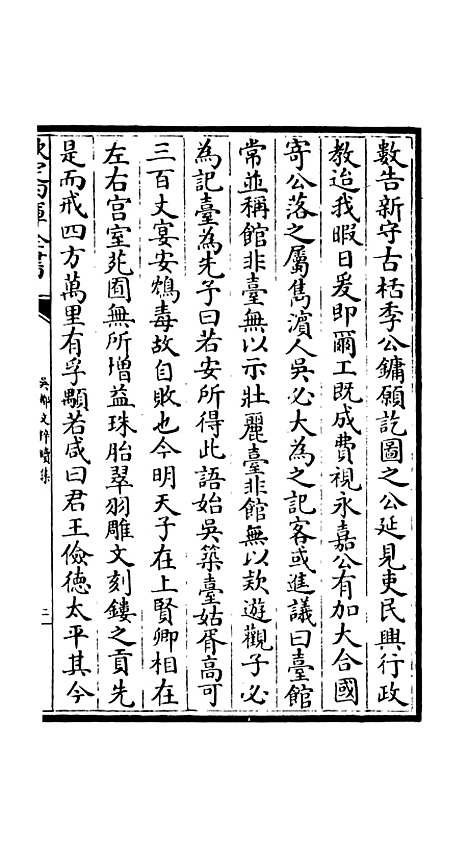 數告新守古栝李公鏞願訖圖之公延見吏民興行政
教迨我暇日爰即爾工既成費視永嘉公有加大合國
寄公落之屬雋濵人吳必大為之記客或進議曰臺館
常並稱館非臺無以示壯麗臺非館無以欵遊觀子必
為記臺為先子曰若安所得此語始吳築臺姑胥高可
三百丈宴安鴆毒故自敗也今明天子在上賢卿相在
左右宫室苑囿無所增益珠胎翠羽雕文刻鏤之貢先
是而戒四方萬里有孚顒若咸曰君王儉德太平其今
欽定四庫全書
吳都文粹續集
三